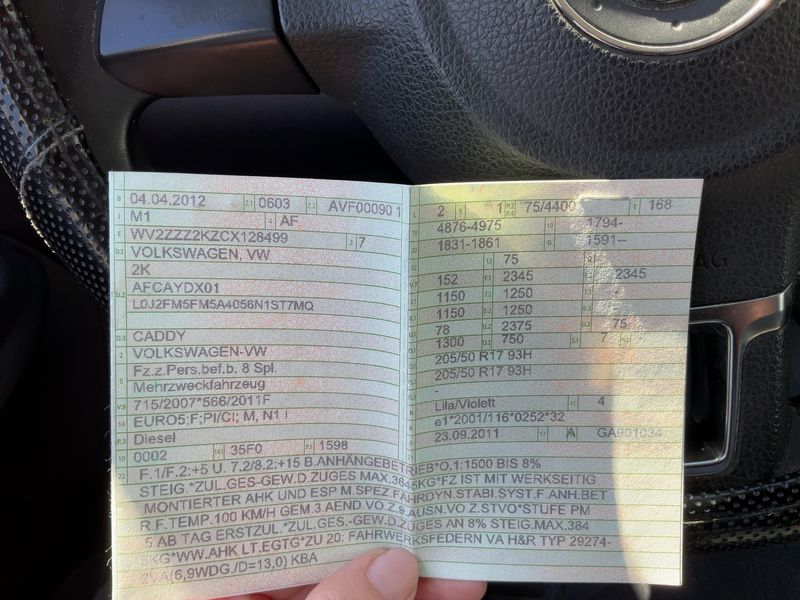 B 04.04.2012 2.1 0603 2.2 AVF00090 1
J M1 4 AF
E WV2ZZZ2KZCX128499 3 7
D.1 VOLKSWAGEN, VW
2K
D.2 AFCAYDX01
L0J2FM5FM5A4056N1ST7MQ
D.3 CADDY
2 VOLKSWAGEN-VW
5 Fz.z.Pers.bef.b. 8 Spl.
Mehrzweckfahrzeug
V.9 715/2007*566/2011F
14 EURO5;F;PI/CI; M, N1 I
P.3 Diesel
10 0002 14.1 35F0 P.1 1598
L 2 9 1 P.2 P.4 75/4400 T 168
18 4876-4975 19 1794-
20 1831-1861 G 1591--
12 13 75 Q
V.7 152 F.1 2345 F.2 2345
7.1 1150 7.2 1250
8.1 1150 8.2 1250
U.1 78 U.2 2375 U.3 75
O.1 1300 O.2 750 S.1 7 S.2
205/50 R17 93H
205/50 R17 93H
R Lila/Violett 11 4
K e1*2001/116*0252*32
6 23.09.2011 17 A GA901034
22 F.1/F.2:+5 U. 7.2/8.2:+15 B.ANHÄNGEBETRIEB*O.1:1500 BIS 8%
STEIG.*ZUL.GES-GEW.D.ZUGES MAX.3845KG*FZ IST MIT WERKSEITIG
MONTIERTER AHK UND ESP M.SPEZ.FAHRDYN.STABI.SYST.F.ANH.BET
R.F.TEMP.100 KM/H GEM.3.AEND.VO.Z.9.AUSN.VO.Z.STVO*STUFE PM
5 AB TAG ERSTZUL.*ZUL.GES.-GEW.D.ZUGES AN 8% STEIG.MAX.384
5KG*WW.AHK LT.EGTG*ZU 20: FAHRWERKSFEDERN VA H&R TYP 29274-
2VA(6,9WDG./D=13,0) KBA